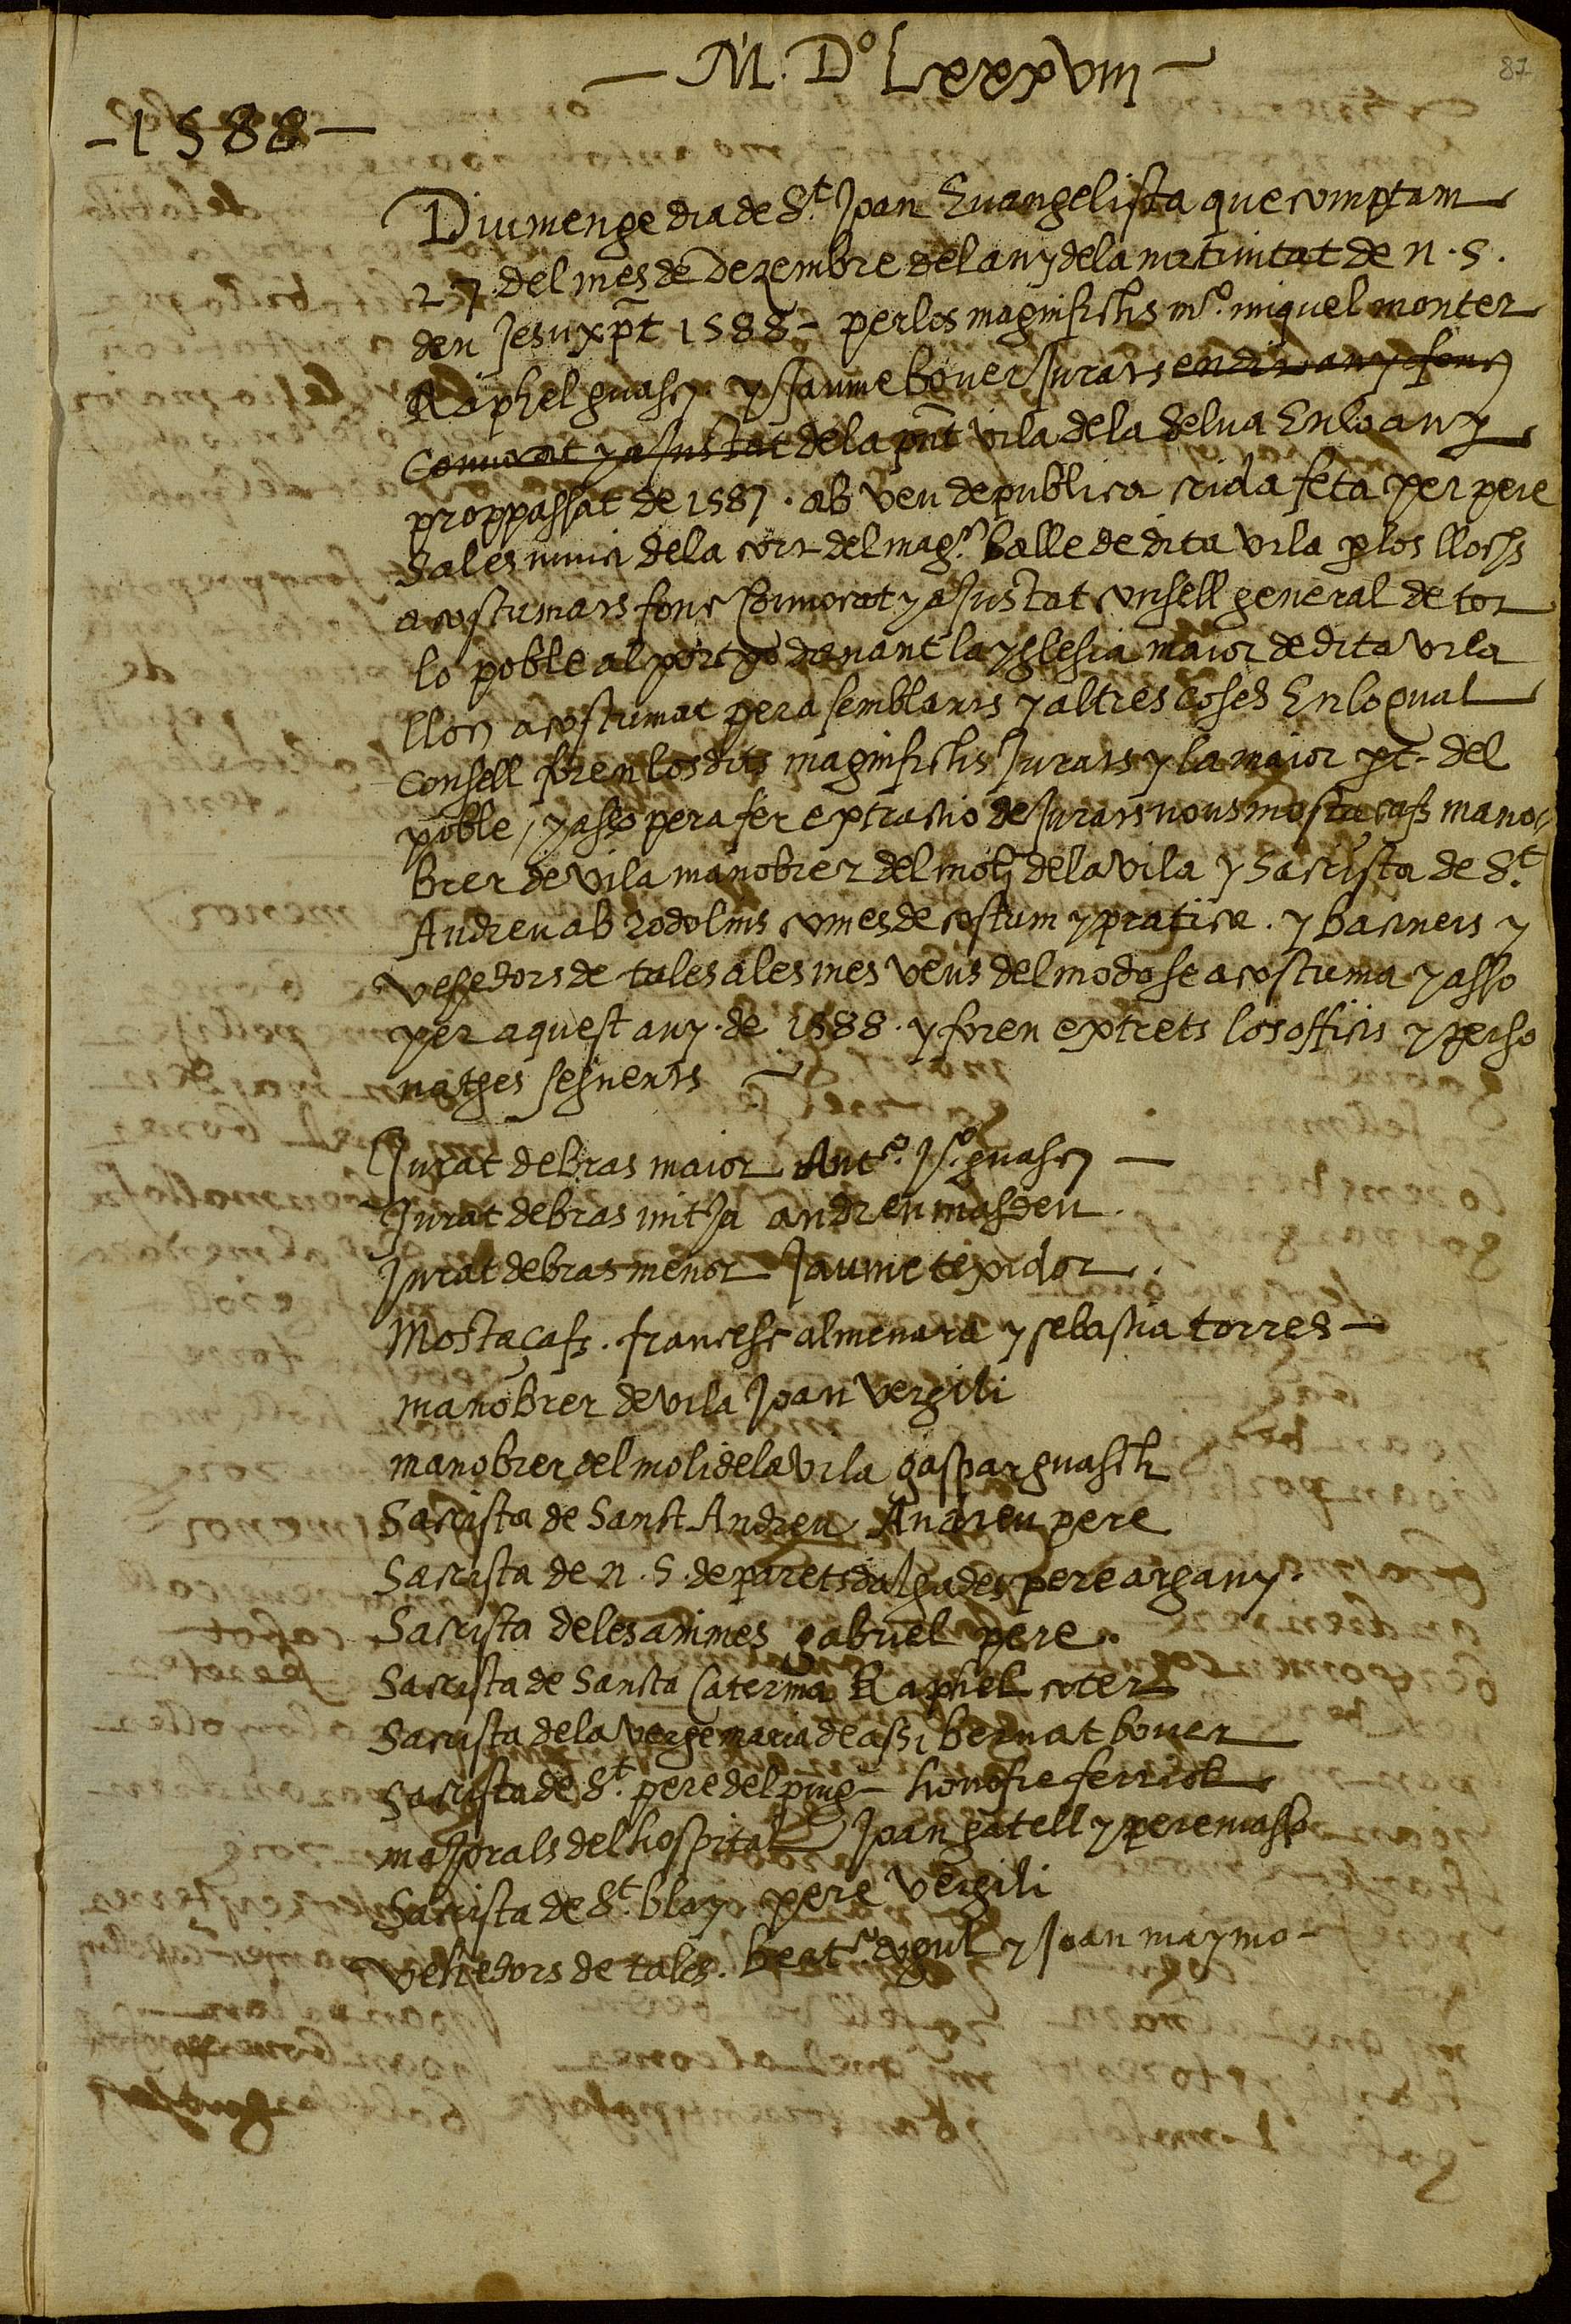 87
— M. Dº Lxxxviii —
— 1588 —
Diumenge dia de St. Joan Evangelista que comptam
27. del mes de Dezembre del any dela nativitat de n. S.
den Jesuxpt 1588 – per los magnifichs mº. miquel monter
Raphel guasch y Jaume bover Jurats en dit any fonch
Convocat y ajustat dela pnt vila dela Selva En lo any
proppassat de 1587. ab veu de publica crida feta per pere
Sales nunci dela cort del magch balle de dita vila p los llochs
acostumats fonc Convocat y aJustat consell general de tot
lo poble al portxo devant la yglesia maior de dita vila
lloch acostumat pera semblants y altres coses En lo qual
Consell foren los dits magnifichs Jurats y la maior pt. del
poble, y asso pera fer extractio de Jurats nous mostaçafs mano
brer de vila manobrer del moli dela vila y Sacrista de St.
Andreu ab rodolins com es de costum y pratica. y baciners y
vehedors de tales ales mes veus del modo se acostuma y asso
per aquest any. de 1588. y foren extrets los officis y perso
natges seguents —
Jurat de bras maior Antº. Jº. guasch —
Jurat de bras mitJa andreu masdeu.
Jurat de bras menor Jaume texidor.
Mostaçafs. francesc almenara y sebastia torres —
manobrer de vila Joan Vergili
manobrer del moli dela vila gaspar guasch
Sacrista de Sanct Andreu Andreu pere
Sacrista de n. S. de parets dalgades pere argany.
Sacrista deles animes gabriel pere.
Sacrista de Sancta Caterina Raphel coter
Sacrista dela Verge maria de assi bernat bover
Sacrista de St. pere del puig – honofre ferriol
maJorals del hospital Joan gatell y pere masso
Sacrista de St. blay pere Vergili
Vehedors de tales. beatº. y Joan maymo –